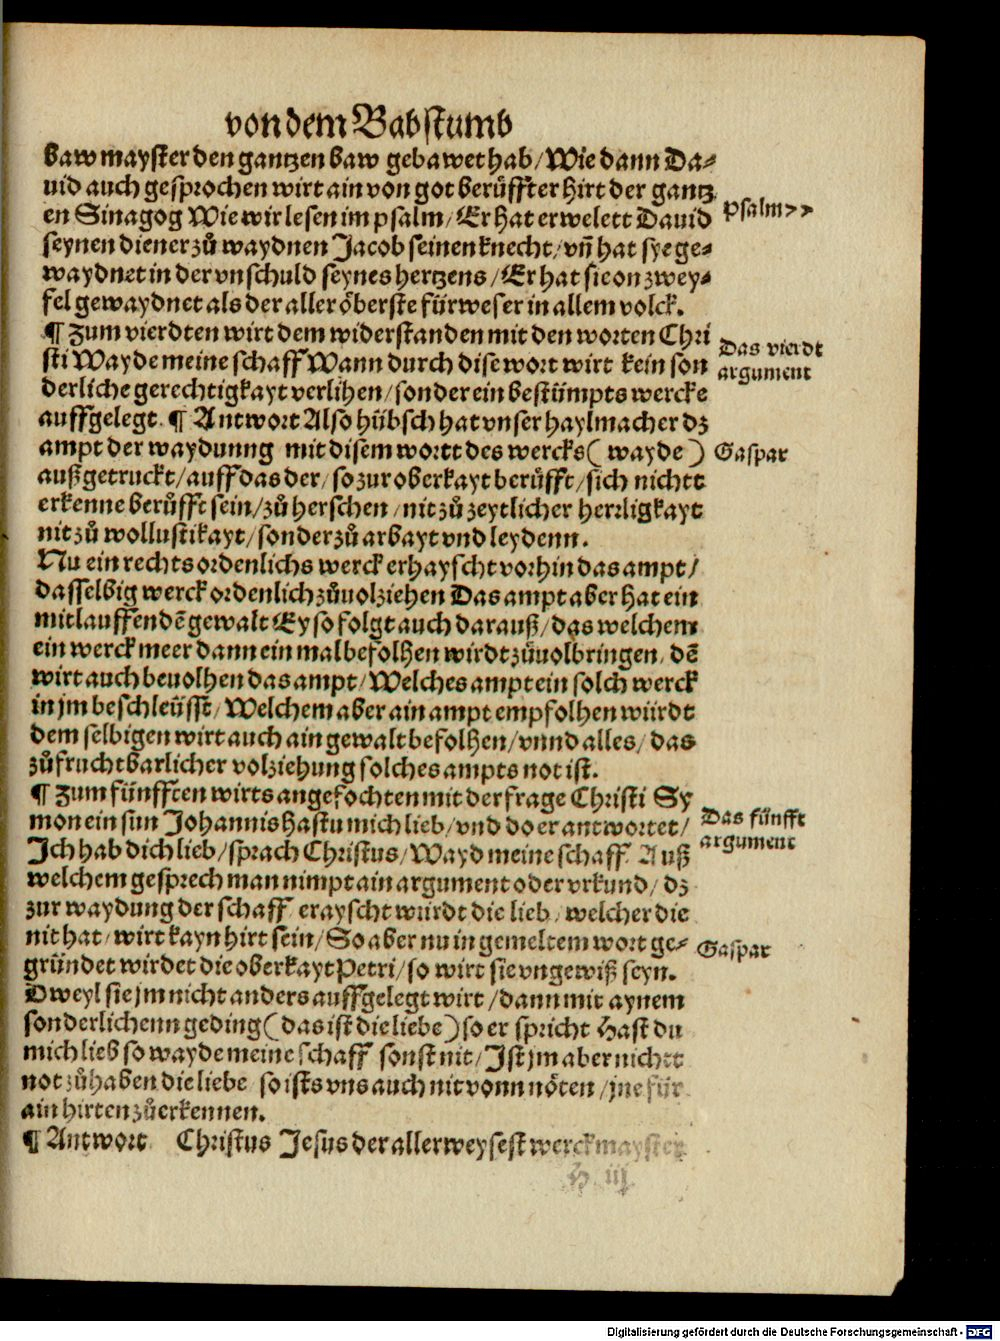 von dem Babstumb
baw mayster den gantzen baw gebawet hab/ Wie dann Da-
uid auch gesprochen wirt ain von got berüffter hirt der gantz
en Sinagog Wie wir lesen im psalm/ Er hat erwelett Dauid
psalm 77
seynen diener zů waydnen Jacob seinen knecht/ vñ hat sye ge-
waydnet in der vnschuld seynes hertzens/ Er hat sie on zwey-
fel gewaydnet als der aller öberste fürweser in allem volck.
¶ Zum vierdten wirt dem widerstanden mit den worten Chri
Das vierdt
sti Wayde meine schaff Wann durch dise wort wirt kein son
argument
derliche gerechtigkayt verlihen/ sonder ein bestümpts wercke
auffgelegt. ¶ Antwort Also hübsch hat vnser haylmacher dz
ampt der waydunng mit disem wortt des wercks ( wayde )
Gaspar
außgetruckt/ auff das der/ so zur oberkayt berůfft/ sich nichtt
erkenne berůfft sein/ zů herschen/ nit zů zeytlicher herrligkayt
nit zů wollustikayt/ sonder zů arbayt vnd leydenn.
Nu ein rechts ordenlichs werck erhayscht vorhin das ampt/
dasselbig werck ordenlich zůuolziehen Das ampt aber hat ein
mitlauffendẽ gewalt Ey so folgt auch darauß/ das welchem
ein werck meer dann ein mal befolhen wirdt zůuolbringen/ dẽ
wirt auch beuolhen das ampt/ Welches ampt ein solch werck
in jm beschleüsst/ Welchem aber ain ampt empfolhen würdt
dem selbigen wirt auch ain gewalt befolhen/ vnnd alles/ das
zů fruchtbarlicher volziehung solches ampts not ist.
¶ Zum fünfften wirts angefochten mit der frage Christi Sy
mon ein sun Johannis hastu mich lieb/ vnd do er antwortet/
Das fünfft
Ich hab dich lieb/ sprach Christus/ Wayd meine schaff Auß
argument
welchem gesprech man nimpt ain argument oder vrkund/ dz
zur waydung der schaff erayscht würdt die lieb/ welcher die
nit hat/ wirt kayn hirt sein/ So aber nu in gemeltem wort ge-
Gaspar
gründet wirdet die oberkayt Petri/ so wirt sie vngewiß seyn.
Dweyl sie jm nicht anders auffgelegt wirt/ dann mit aynem
sonderlichenn geding ( das ist die liebe ) so er spricht Hast du
mich lieb so wayde meine schaff sonst nit/ Ist jm aber nichtt
not zůhaben die liebe so ists vns auch nit vonn nöten/ jne für
ain hirten zůerkennen.
¶ Antwort Christus Jesus der allerweysest werckmayster
H iij
Digitalisierung gefördert durch die Deutsche Forschungsgemeinschaft - DFG